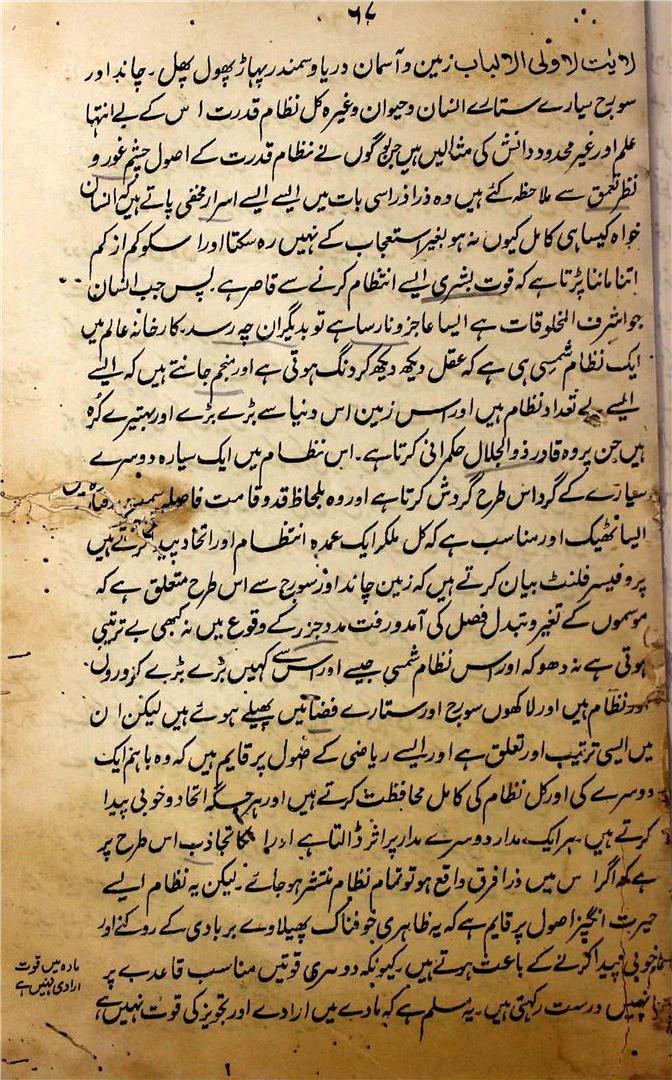 ٦٧
لاٰیٰت لاولی الالباب زمین و آسمان دریا و سمندر پہاڑ پھول پھل ۔ چاند اور
سورج سیارے ستارے انسان و حیوان وغیرہ کل نظام قدرت اس کے بے انتہا
علم اور غیر محدود دانش کی مثالیں ہیں جن لوگوں نے نظام قدرت کے اصول چشم غور و
نظر تعمق سے ملاحظہ کئے ہیں وہ ذرا ذرا سی بات میں ایسے ایسے اسرار مخفی پاتے ہیں کہ انسان
خواہ کیسا ہی کامل کیوں نہ ہو بغیر استعجاب کے نہیں رہ سکتا اور اسکو کم از کم
اتنا ماننا پڑتا ہے کہ قوت بشری ایسے انتظام کرنے سے قاصر ہے ۔ پس جب انسان
جو اشرف المخلوقات ہے ایسا عاجز و نارسا ہے تو بدیگران چہ رسد ۔ کارخانہ عالم میں
ایک نظام شمسی ہی ہے کہ عقل دیکھ دیکھ کر دنگ ہوتی ہے اور منجم جانتے ہیں کہ ایسے
ایسے بے تعداد نظام ہیں اور اس زمین اس دنیا سے بڑے بڑے اور بہتیرے کُرہ
ہیں جن پر وہ قادر ذوالجلال حکمرانی کرتا ہے ۔ اس نظام میں ایک سیارہ دوسرے
سیارے کے گرد اس طرح گردش کرتا ہے اور وہ بلحاظ قد و قامت فاصلہ سمت
ایسا ٹھیک اور مناسب ہے کہ کل ملکر ایک عمدہ انتظام اور اتحاد پیدا کرتے ہیں
پروفیسر فلنٹ بیان کرتے ہیں کہ زمین چاند اور سورج سے اس طرح متعلق ہے کہ
موسموں کے تغیر و تبدل فصل کی آمد و رفت مد و جزر کے وقوع میں نہ کبھی بے ترتیبی
ہوتی ہے نہ دھوکہ اور اس نظام شمسی جیسے اور اس سے کہیں بڑے بڑے کروروں
نظام ہیں اور لاکھوں سورج اور ستارے فضا میں پھیلے ہوئے ہیں لیکن ان
میں ایسی ترتیب اور تعلق ہے اور ایسے ریاضی کے اصول پر قایم ہیں کہ وہ باہم ایک
دوسرے کی اور کل نظام کی کامل محافظت کرتے ہیں اور ہر جگہ اتحاد و خوبی پیدا
کرتے ہیں ۔ ہر ایک مدار دوسرے مدار پر اثر ڈالتا ہے اور ان کا تجاذب اس طرح پر
ہے کہ اگر اس میں ذرا فرق واقع ہو تو تمام نظام منتشر ہو جائے ۔ لیکن یہ نظام ایسے
حیرت انگیز اصول پر قایم ہے کہ یہ ظاہری خوفناک پھیلاوے بربادی کے روکنے اور
خوبی پیدا کرنے کے باعث ہوتے ہیں ۔ کیونکہ دوسری قوتیں مناسب قاعدے پر
انہیں درست رکھتی ہیں ۔ یہ مسلم ہے کہ مادے میں ارادے اور تجویز کی قوت نہیں ہے
مادہ میں قوت
ارادی نہیں ہے